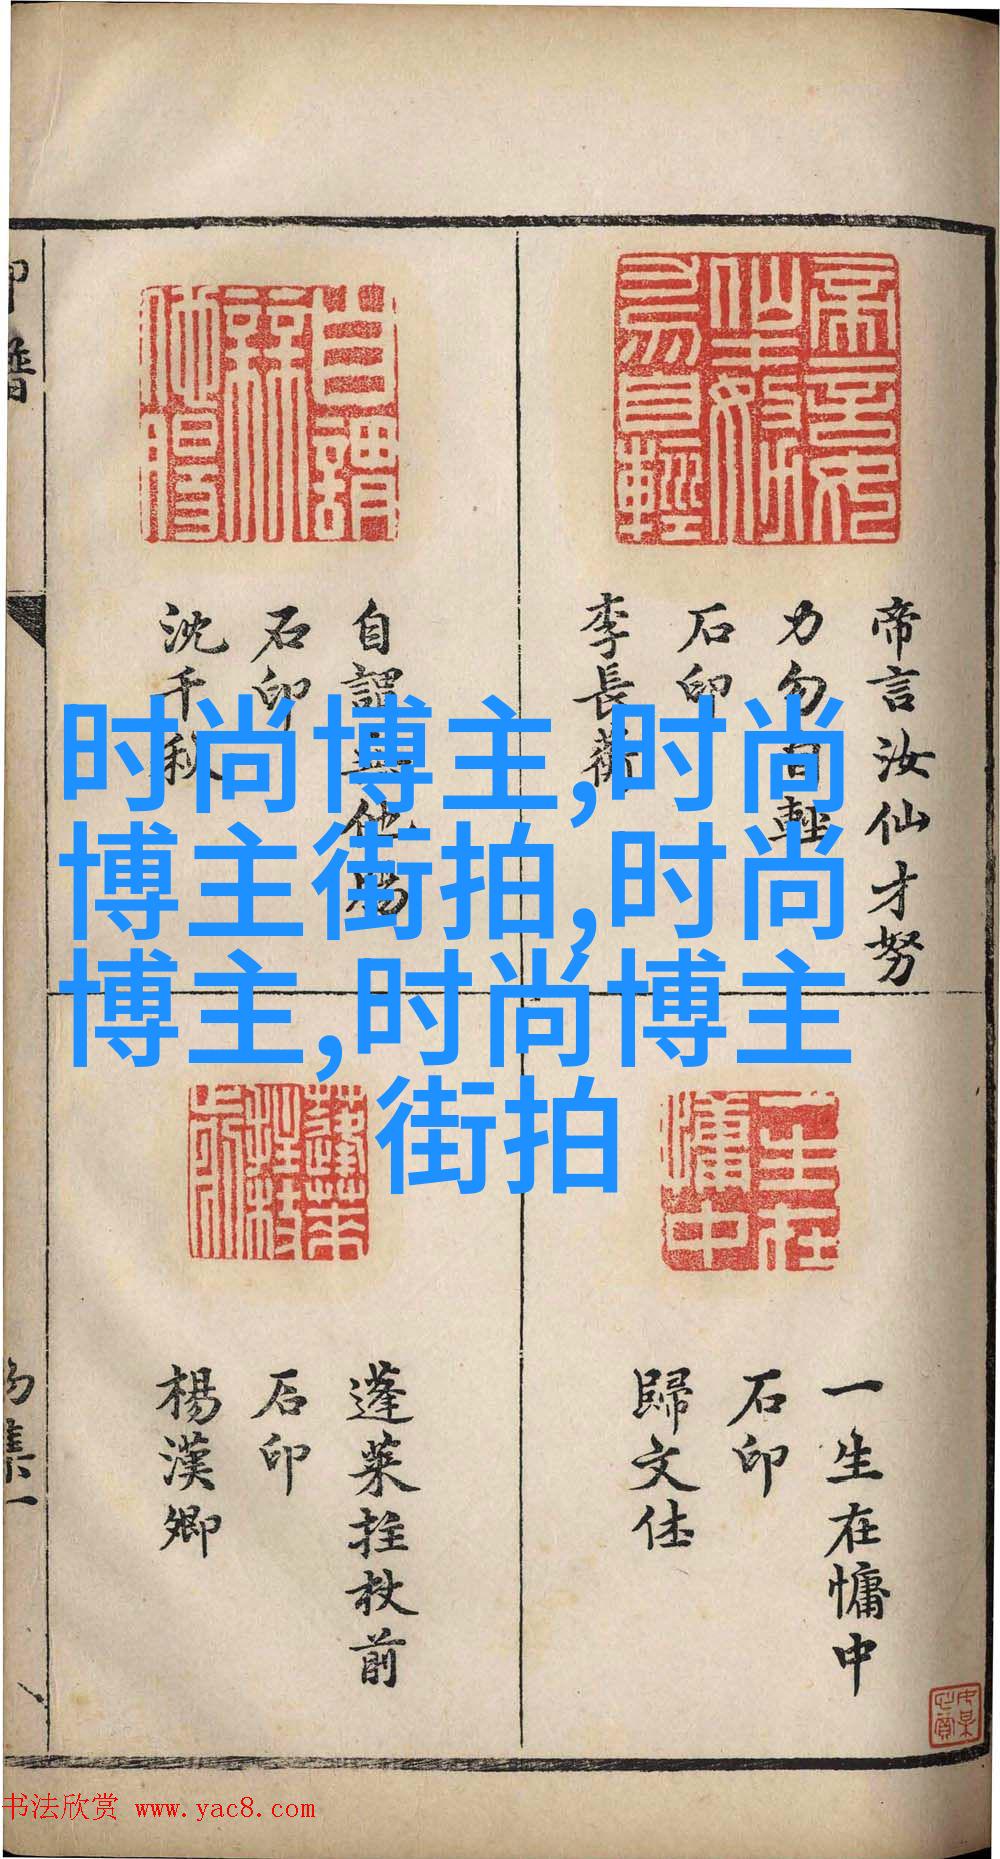 帝言汝仙才努
力勿自輕
石印
李長蘅
自謂無他腸
石印
沈千秋
一生在慵中
石印
歸文休
蓬萊拄杖前
石印
楊漢卿
时尚博主,时尚
博主街拍,时尚
博主,时尚博主
街拍
书法欣赏 www.yac8.com